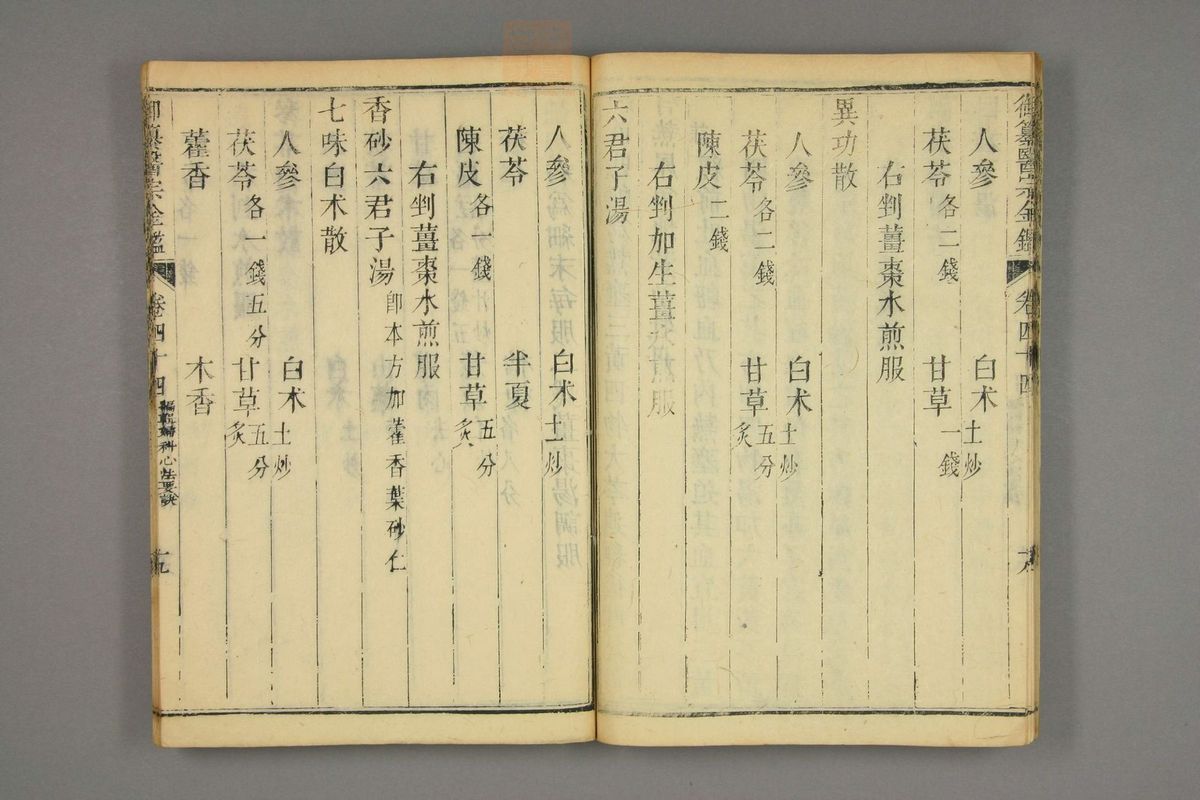 御纂醫宗金鑑 卷四十四 十八
人參 白朮土炒
茯苓各二錢 甘草一錢
右剉薑棗水煎服
異功散
人參 白朮土炒
茯苓各二錢 甘草炙五分
陳皮二錢
右剉加生薑水煎服
六君子湯
人參 白朮土炒
茯苓 半夏
陳皮各一錢 甘草炙五分
右剉薑棗水煎服
香砂六君子湯即本方加藿香葉砂仁
七味白朮散
人參 白朮土炒
茯苓各一錢五分 甘草炙五分
藿香 木香
御纂醫宗金鑑 卷四十四 編輯婦科心法要訣 十九